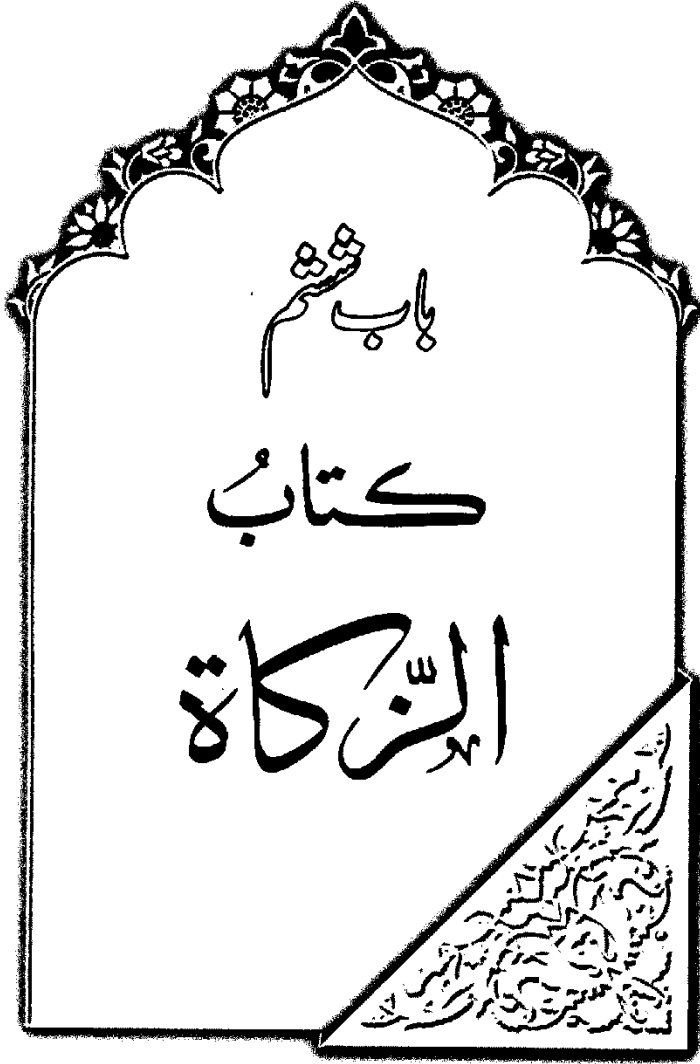 باب ششم
كتابُ
الزّكاة